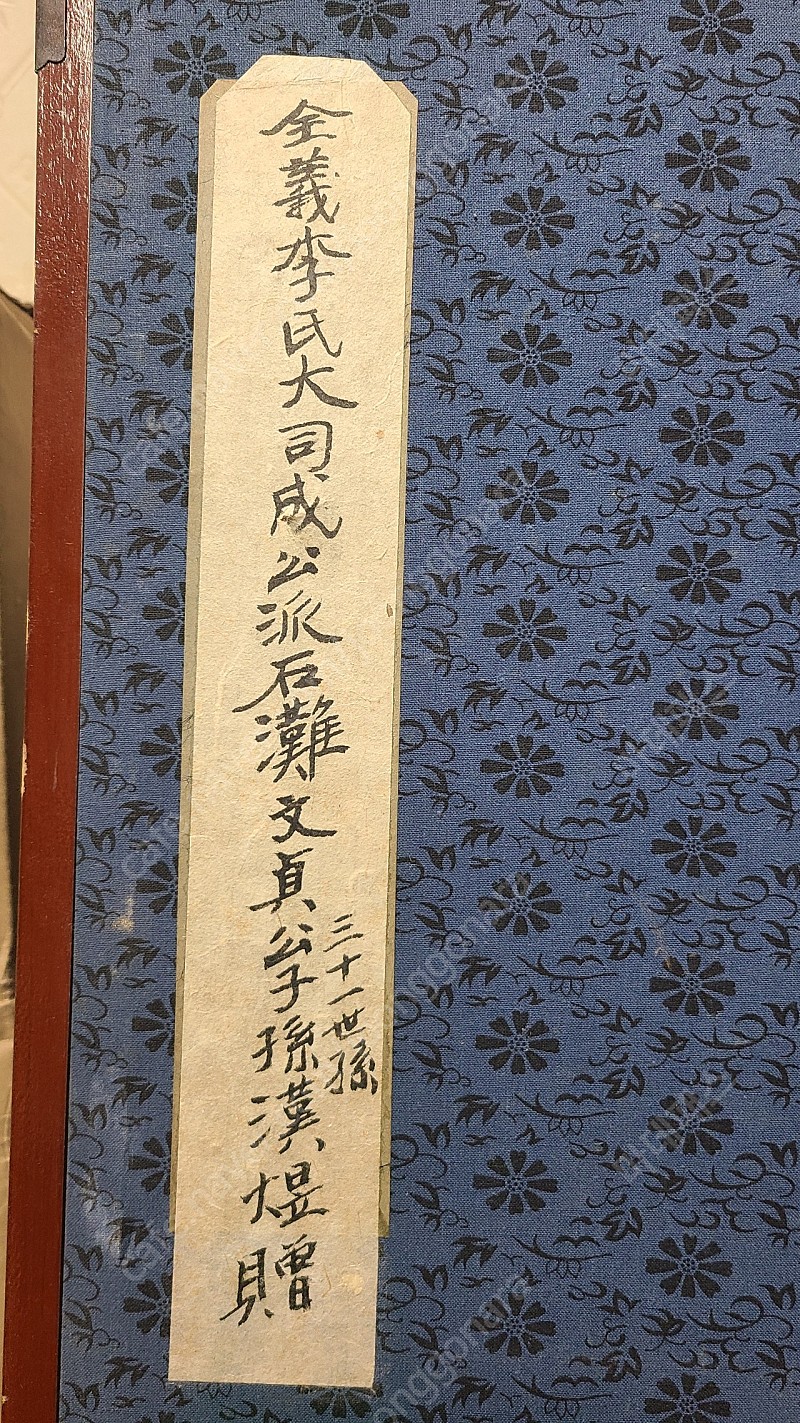 全義李氏大司成公派石灘文貞公子孫漢煜贈
三十一世孫